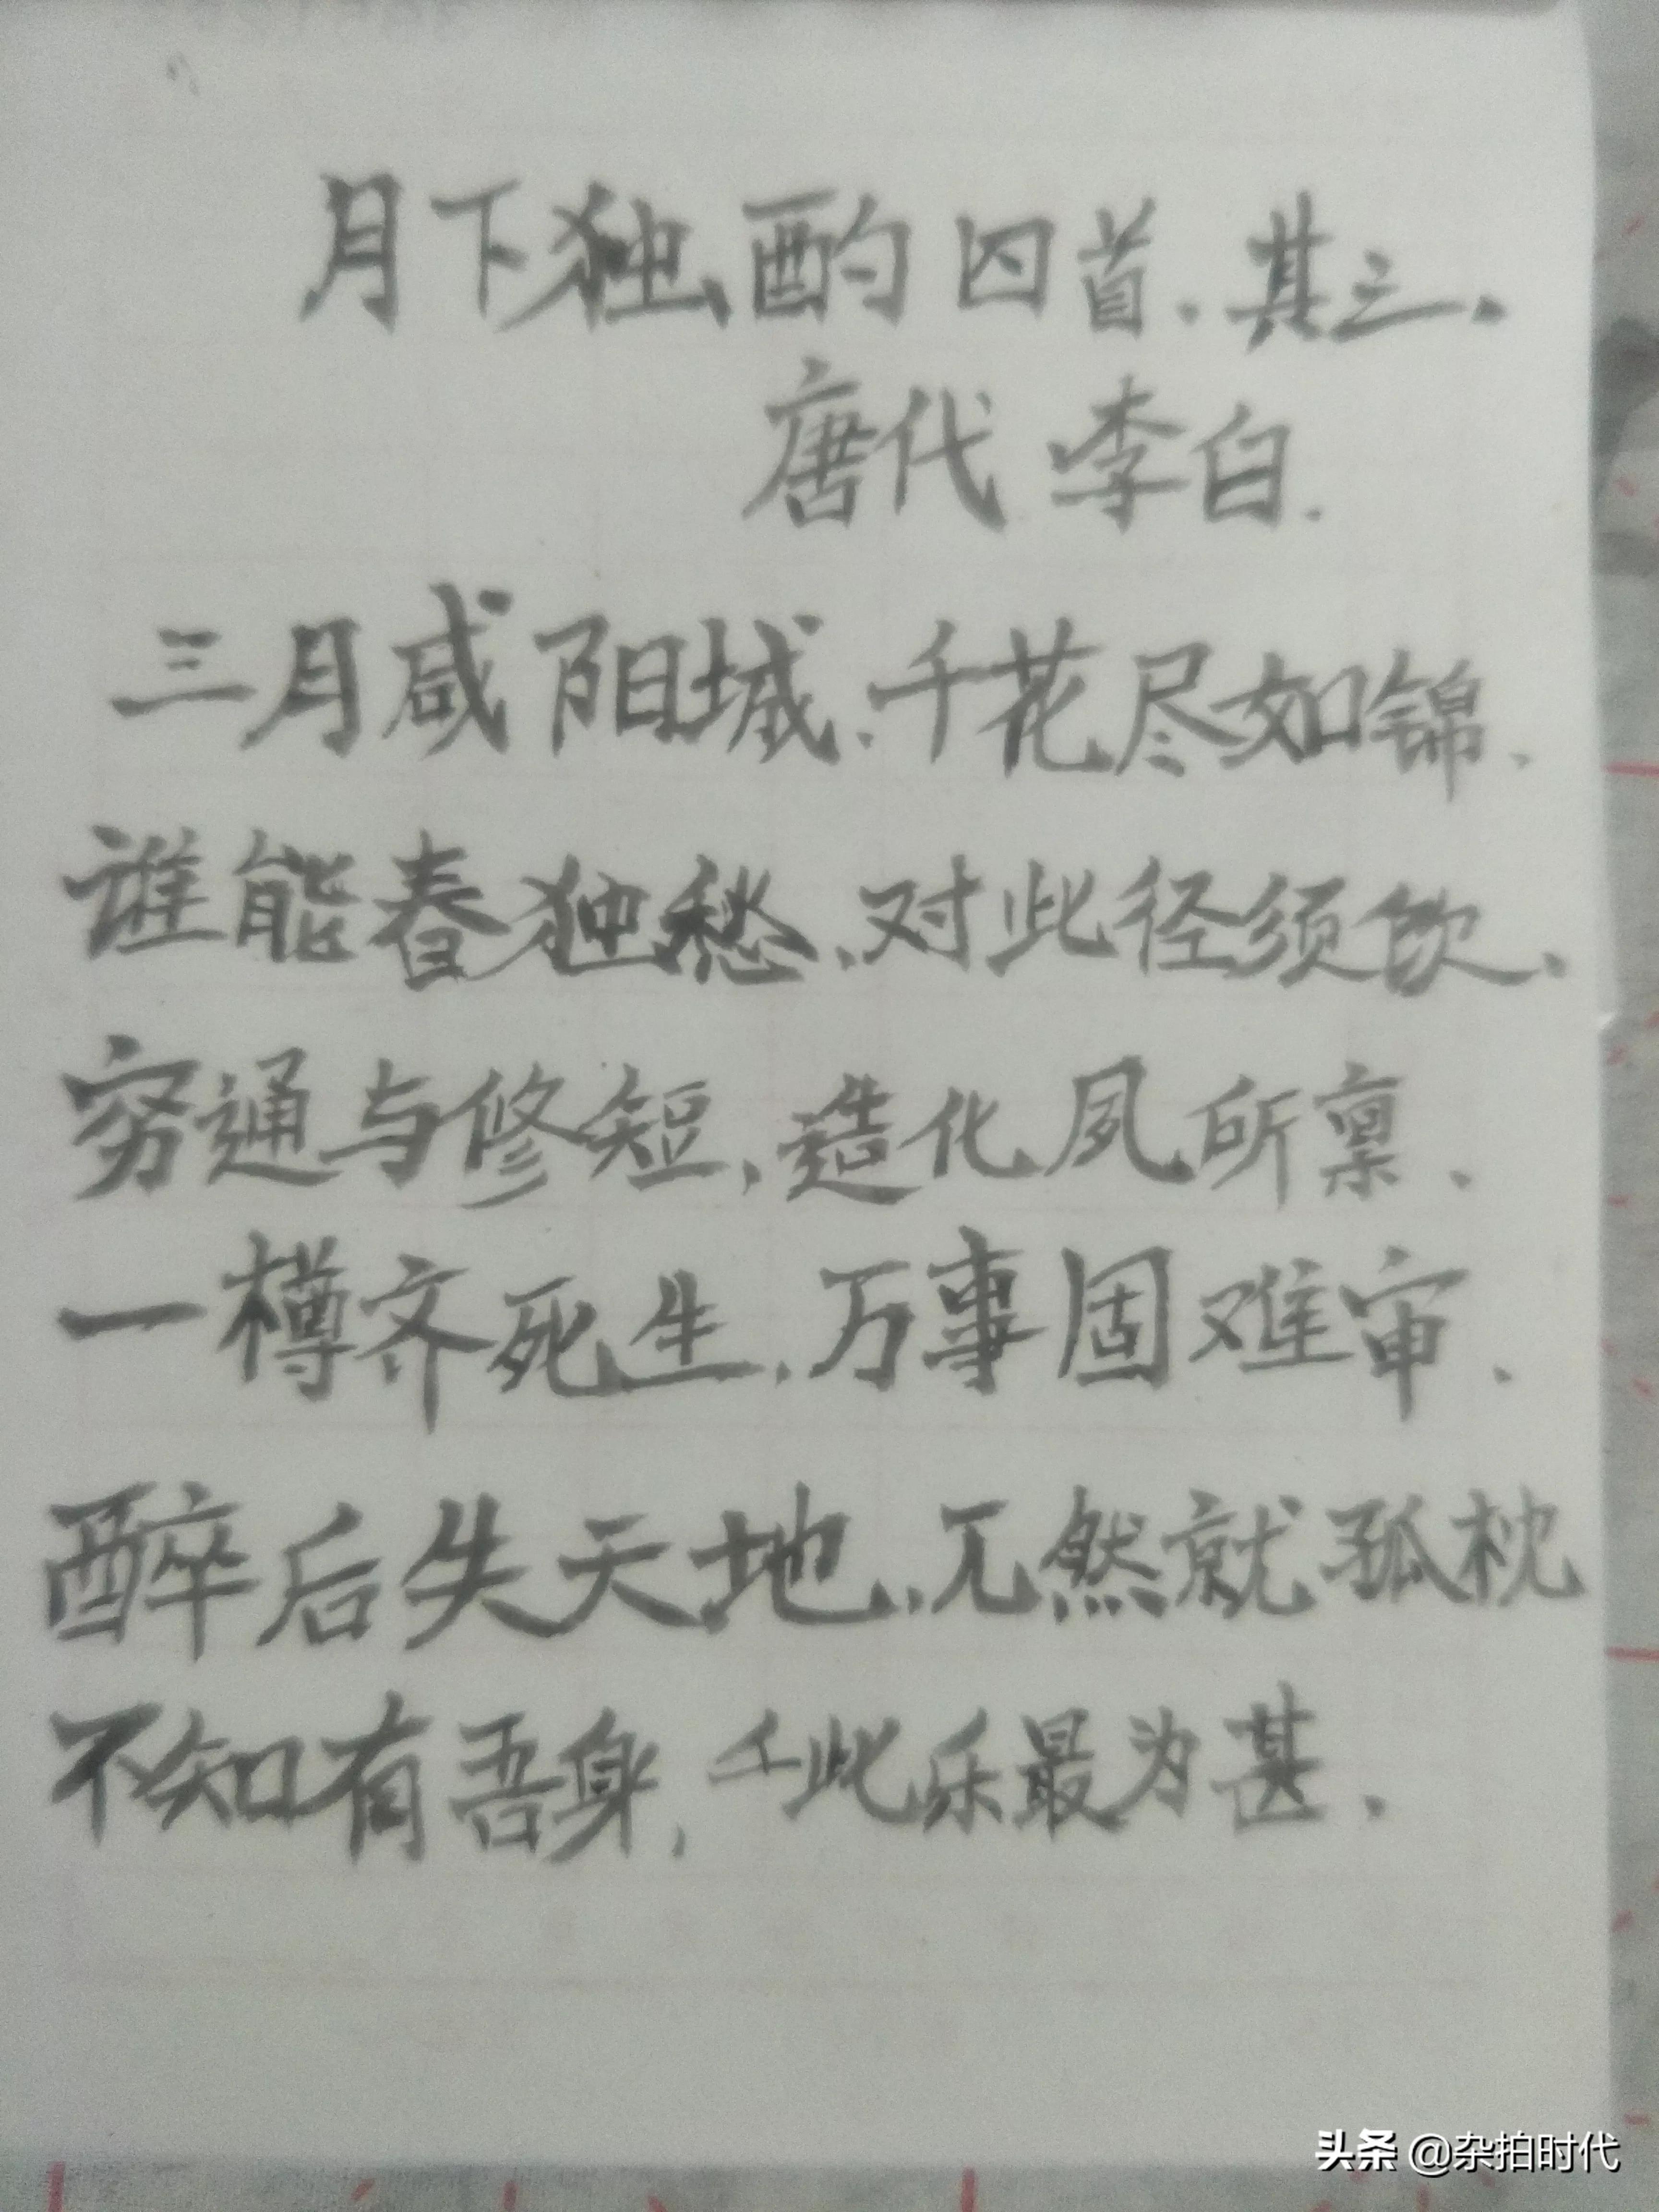 月下独酌四首.其三.
唐代 李白.
三月咸阳城.千花尽如锦.
谁能春独愁.对此径须饮.
穷通与修短,造化夙所禀.
一樽齐死生.万事固难审.
醉后失天地.兀然就孤枕
不知有吾身,此乐最为甚.
头条 @杂拍时代